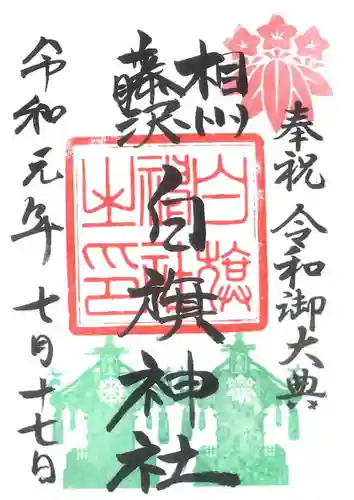 奉祝 令和御大典
相州
藤沢
白旗神社
白旗
神社
之印
令和元年 七月十七日